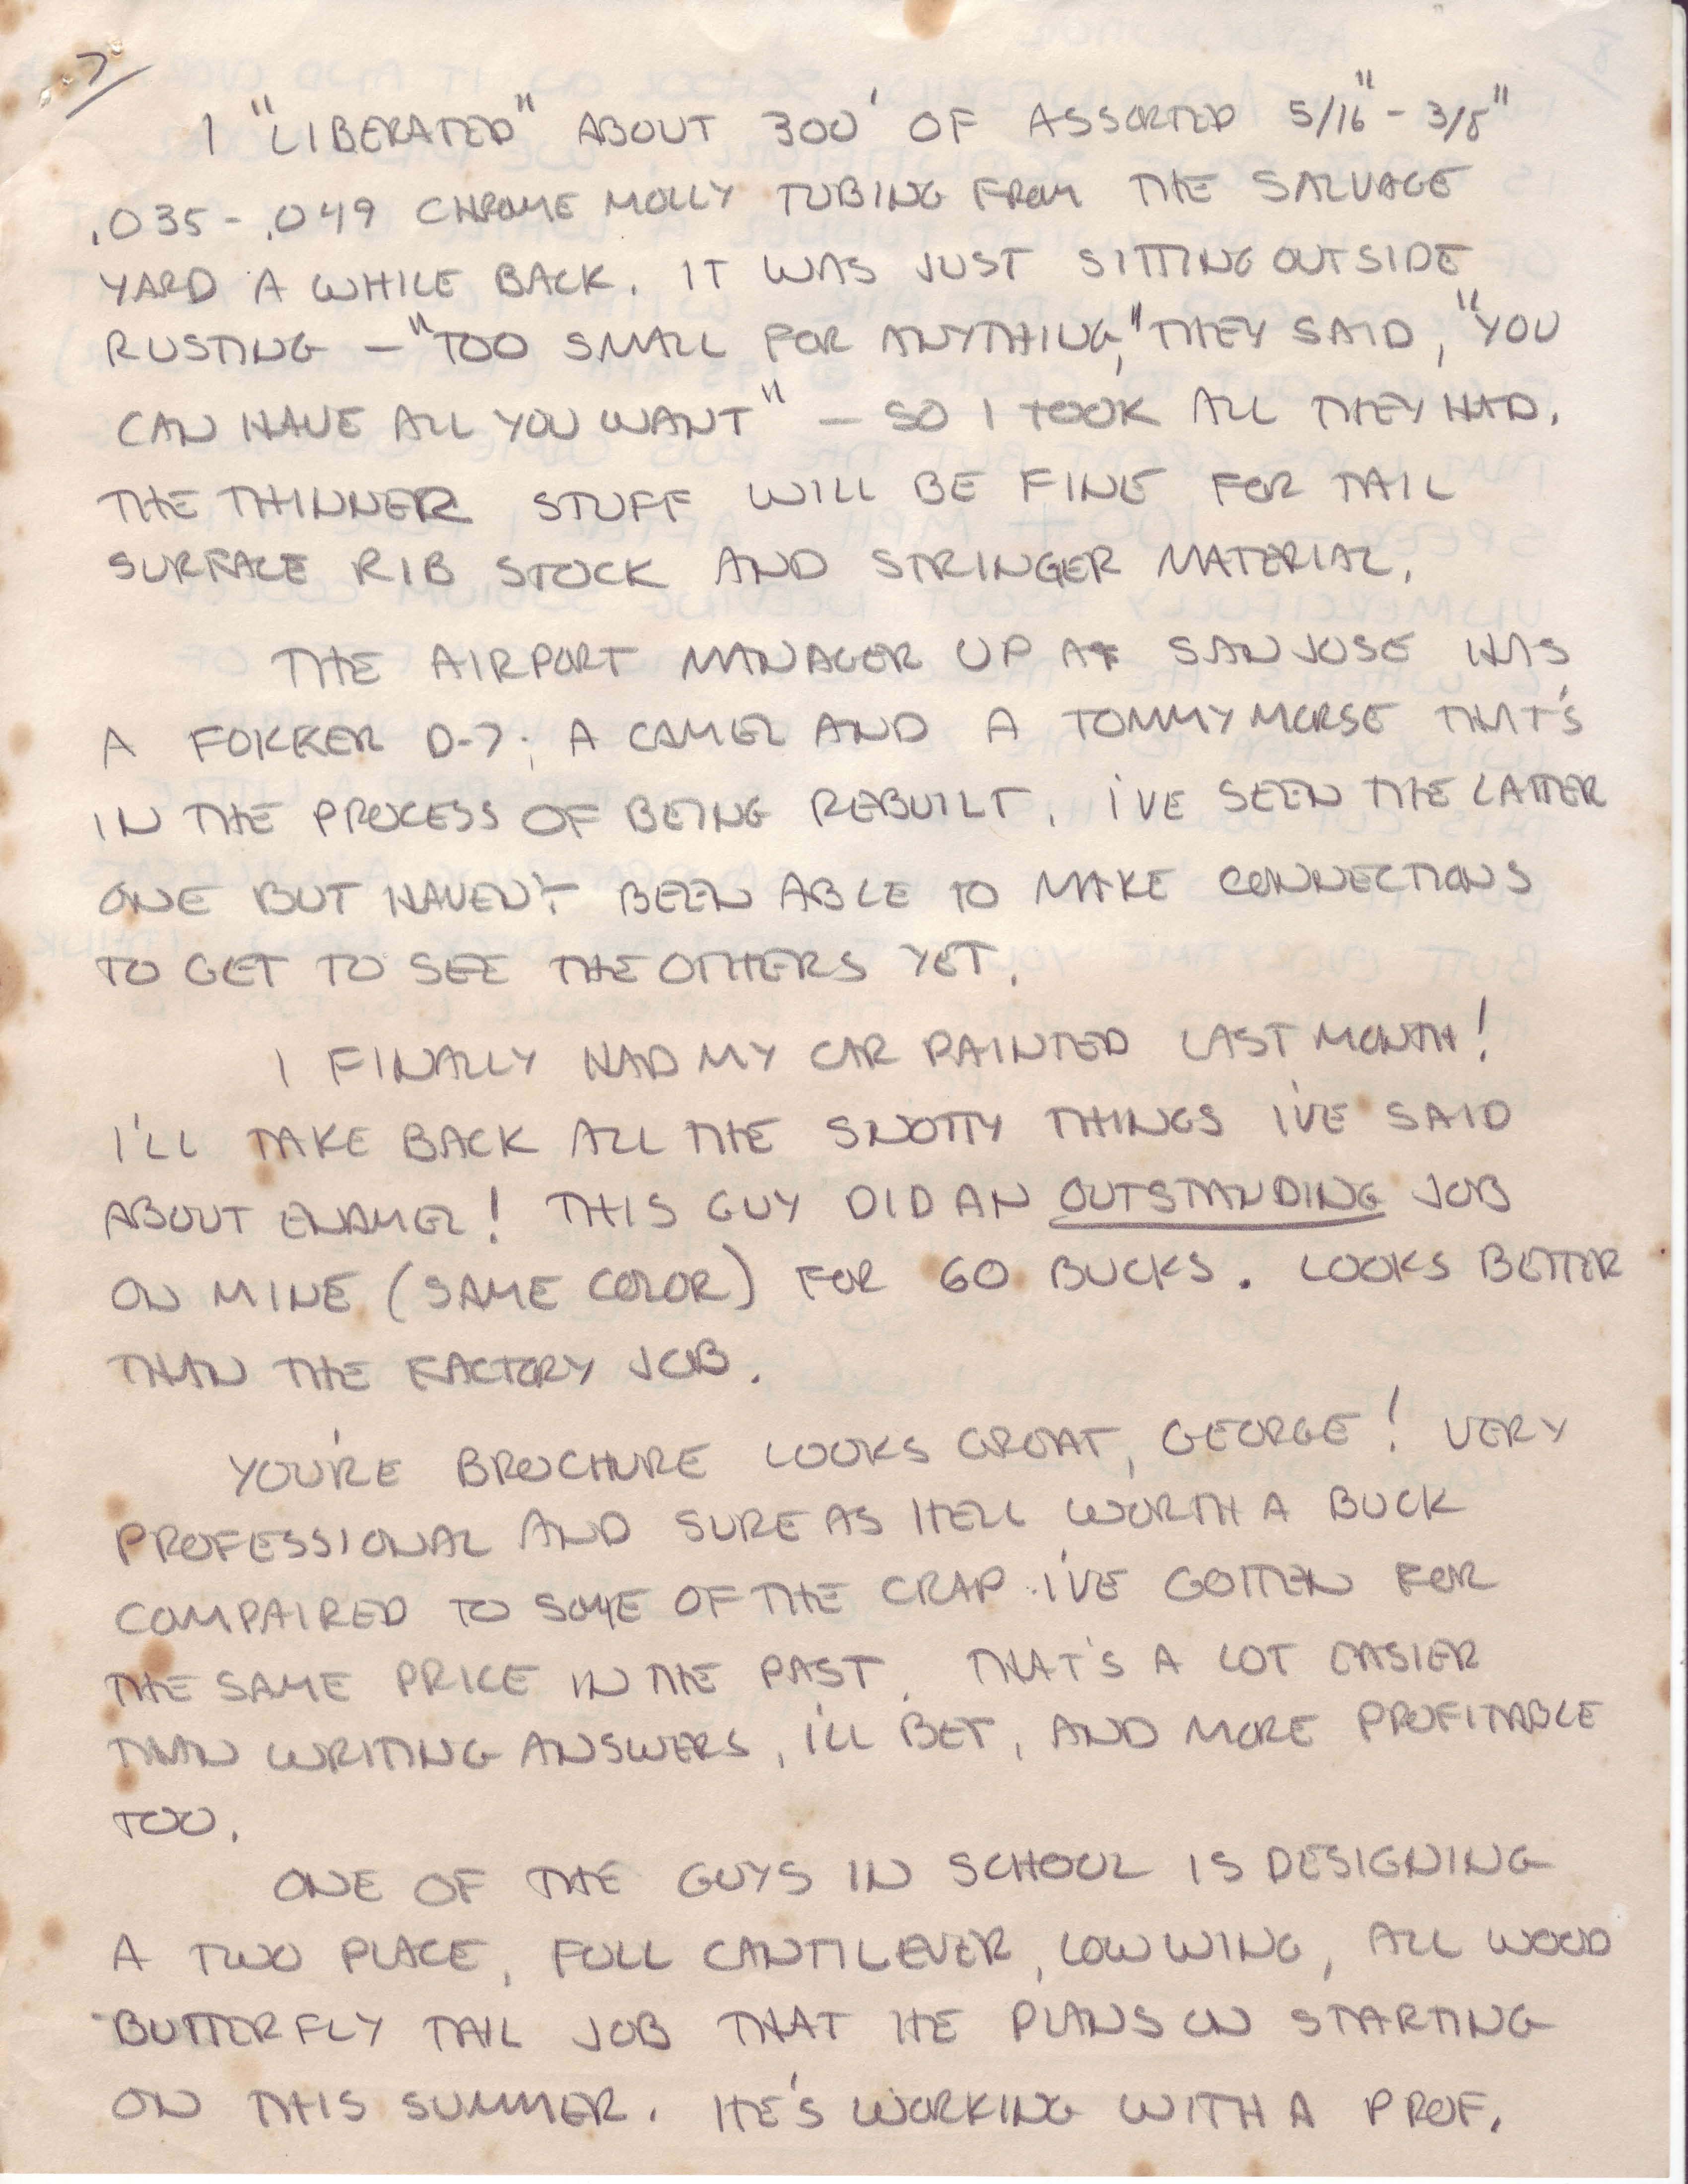 7
I "LIBERATED" ABOUT 300' OF ASSORTED 5/16" - 3/8"
.035 - .049 CHROME MOLLY TUBING FROM THE SALVAGE
YARD A WHILE BACK. IT WAS JUST SITTING OUTSIDE
RUSTING — "TOO SMALL FOR ANYTHING," THEY SAID, "YOU
CAN HAVE ALL YOU WANT" — SO I TOOK ALL THEY HAD.
THE THINNER STUFF WILL BE FINE FOR TAIL
SURFACE RIB STOCK AND STRINGER MATERIAL.
THE AIRPORT MANAGER UP AT SAN JOSE HAS
A FOKKER D-7, A CAMEL AND A TOMMY MORSE THAT'S
IN THE PROCESS OF BEING REBUILT. I'VE SEEN THE LATTER
ONE BUT HAVEN'T BEEN ABLE TO MAKE CONNECTIONS
TO GET TO SEE THE OTHERS YET.
I FINALLY HAD MY CAR PAINTED LAST MONTH!
I'LL TAKE BACK ALL THE SNOTTY THINGS I'VE SAID
ABOUT ENAMEL! THIS GUY DID AN OUTSTANDING JOB
ON MINE (SAME COLOR) FOR 60 BUCKS. LOOKS BETTER
THAN THE FACTORY JOB.
YOU'RE BROCHURE LOOKS GREAT, GEORGE! VERY
PROFESSIONAL AND SURE AS HELL WORTH A BUCK
COMPAIRED TO SOME OF THE CRAP I'VE GOTTEN FOR
THE SAME PRICE IN THE PAST. THAT'S A LOT EASIER
THAN WRITING ANSWERS, I'LL BET, AND MORE PROFITABLE
TOO.
ONE OF THE GUYS IN SCHOOL IS DESIGNING
A TWO PLACE, FULL CANTILEVER, LOW WING, ALL WOOD
BUTTERFLY TAIL JOB THAT HE PLANS ON STARTING
ON THIS SUMMER. HE'S WORKING WITH A PROF.